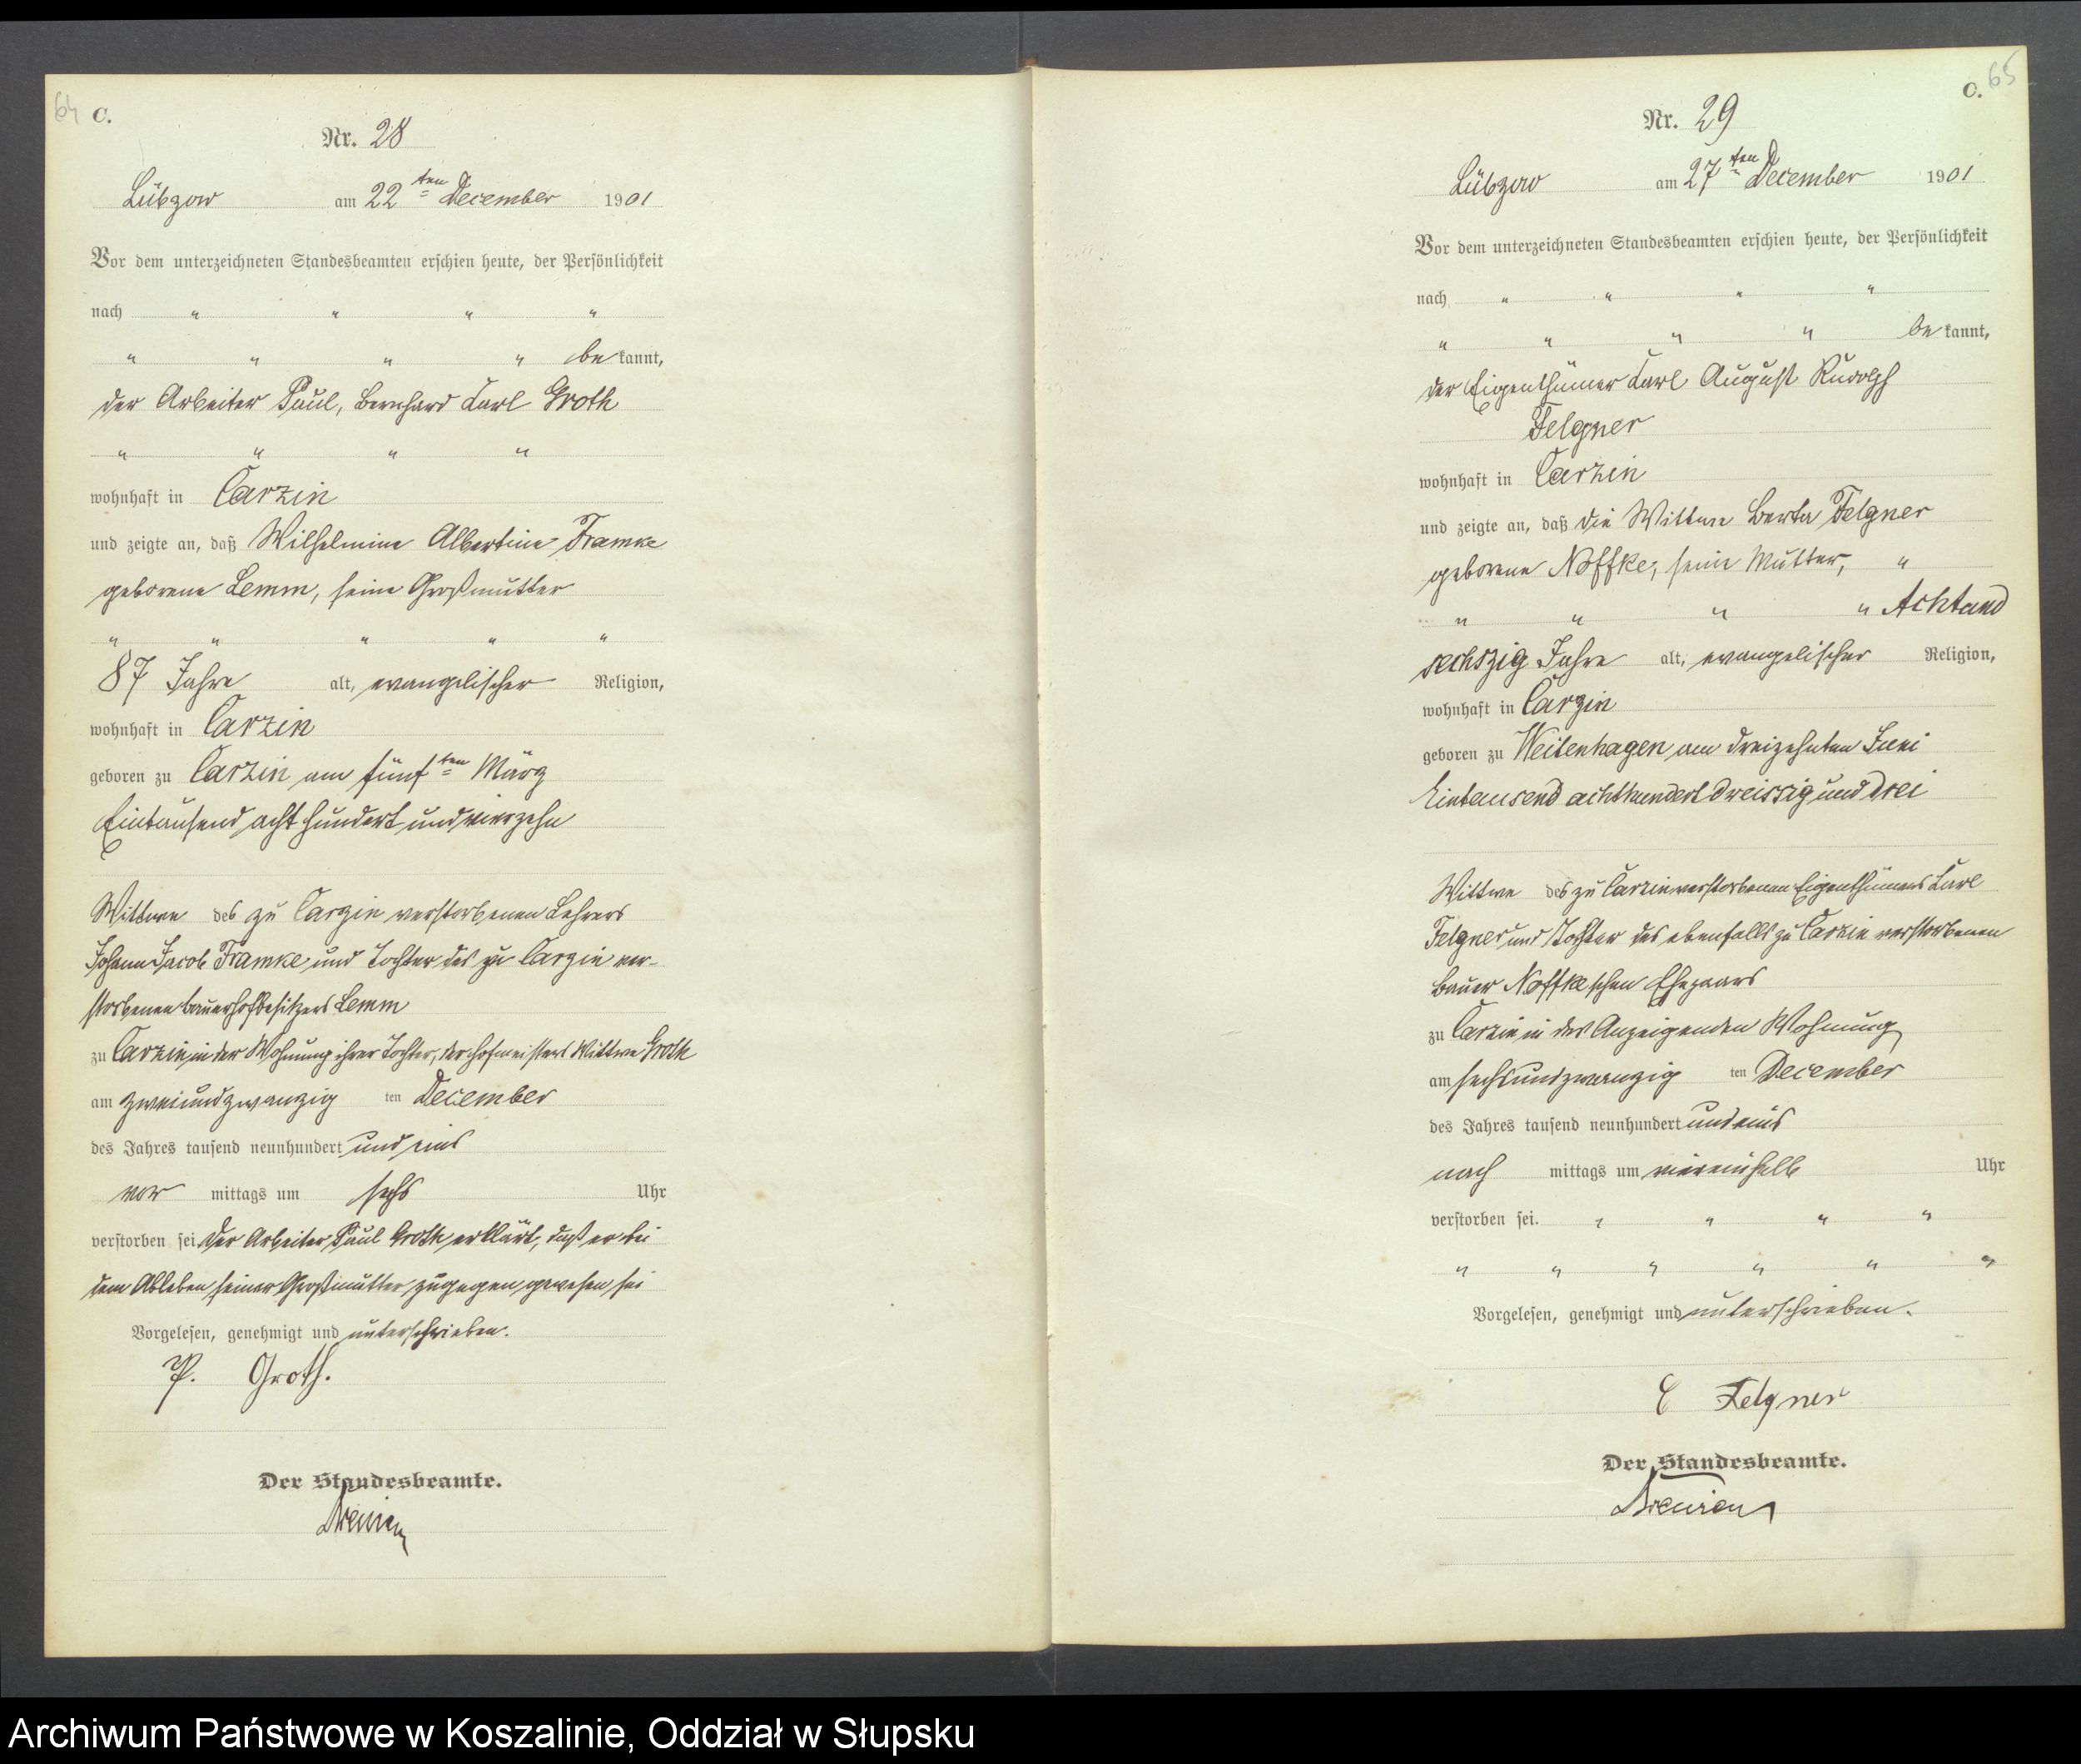 64 C.
Nr. 28
Lübzow am 22ten December 1901
Vor dem unterzeichneten Standesbeamten erschien heute, der Persönlichkeit
nach " " " "
" " " " be kannt,
der Arbeiter Paul, Bernhard Carl Groth
" " " "
wohnhaft in Carzin
und zeigte an, daß Wilhelmine Albertine Framke
geborene Lemm, seine Großmutter
" " " " "
87 Jahre alt, evangelischer Religion,
wohnhaft in Carzin
geboren zu Carzin am fünften März
Eintausend acht hundert und vierzehn
Wittwe des zu Carzin verstorbenen Lehrers
Johann Jacob Framke und Tochter des zu Carzin ver-
storbenen Bauerhofbesitzers Lemm
zu Carzin in der Wohnung ihrer Tochter, der Hofmeisters Wittwe Groth
am zweiundzwanzig ten December
des Jahres tausend neunhundert und eins
vor mittags um sechs Uhr
verstorben sei. Der Arbeiter Paul Groth erklärt, daß er bei
dem Ableben seiner Großmutter zugegen gewesen sei
Vorgelesen, genehmigt und unterschrieben.
P. Groth.
Der Standesbeamte.
C. 65
Nr. 29
Lübzow am 27ten December 1901
Vor dem unterzeichneten Standesbeamten erschien heute, der Persönlichkeit
nach " " " "
" " " " be kannt,
der Eigenthümer Carl August Rudolph
Felgner
wohnhaft in Carzin
und zeigte an, daß die Wittwe Berta Felgner
geborene Noffke, seine Mutter, "
" " " " Achtund
sechszig Jahre alt, evangelischer Religion,
wohnhaft in Carzin
geboren zu Weitenhagen am dreizehnten Juni
Eintausend achthundert dreissig und drei
Wittwe des zu Carzin verstorbenen Eigenthümers Carl
Felgner und Tochter des ebenfalls zu Carzin verstorbenen
Bauer Noffkeschen Ehepaars
zu Carzin in des Anzeigenden Wohnung
am sechsundzwanzig ten December
des Jahres tausend neunhundert und eins
nach mittags um viereinhalb Uhr
verstorben sei. " " " "
" " " " " "
Vorgelesen, genehmigt und unterschrieben.
C Felgner
Der Standesbeamte.
Archiwum Państwowe w Koszalinie, Oddział w Słupsku